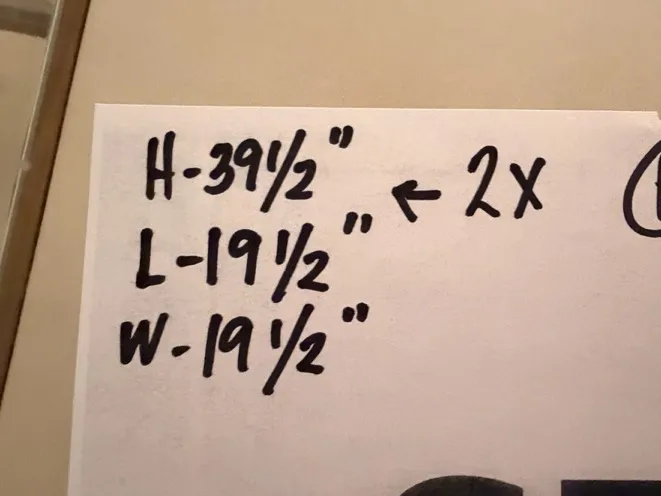 H-39 1/2" ← 2x
L-19 1/2"
W-19 1/2"